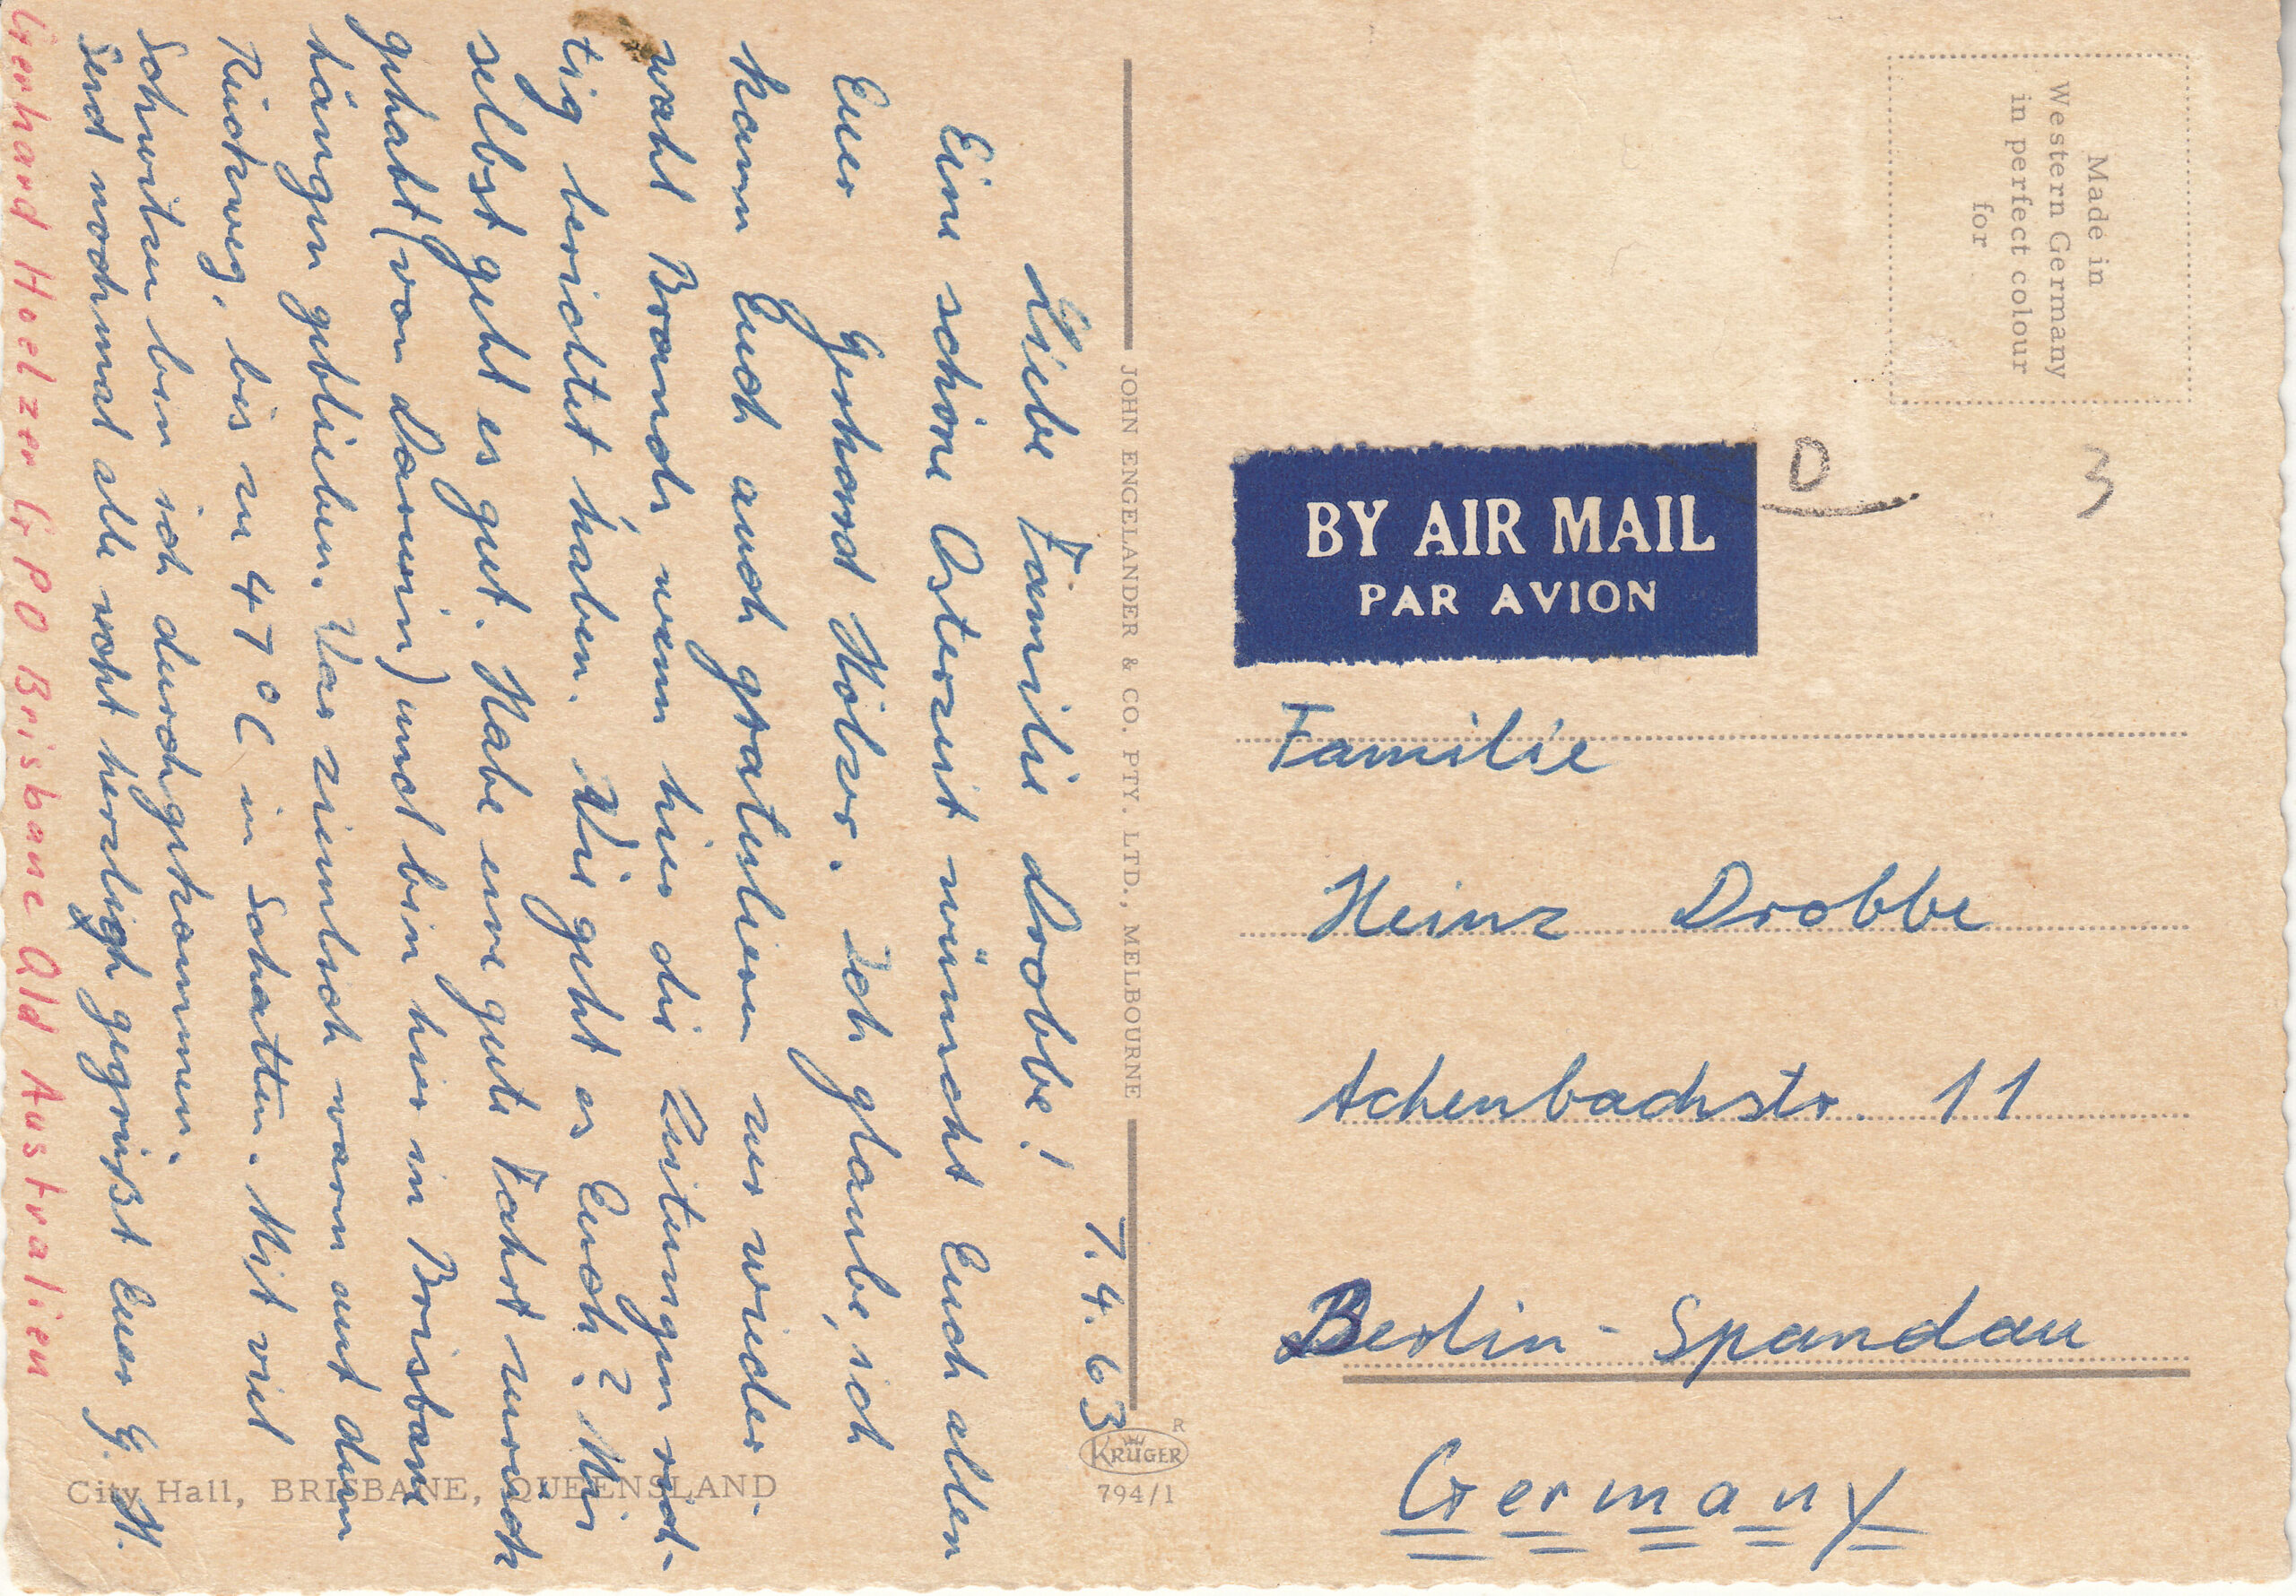 7.4.63
Liebe Familie Drobbe!
Eine schöne Osterzeit wünscht Euch allen
Euer Gerhard Hölzer. Ich glaube, ich
kann Euch auch gratulieren zur wieder-
wahl Brands wenn hier die Zeitungen rich-
tig berichtet haben. Wie geht es Euch? Mir
selbst geht es gut. Habe eine gute Fahrt zurück
gehabt (von Darwin) und bin hier in Brisbane
hängen geblieben. War ziemlich warm auf dem
Rückweg, bis zu 47°C im Schatten. Mit viel
Schwitzen bin ich durchgekommen.
Seid nochmal alle recht herzligh gegrüßt Euer G. H.
Gerhard Hoelzer GPO Brisbane Qld Australien
City Hall, BRISBANE, QUEENSLAND
JOHN ENGELANDER & CO. PTY. LTD., MELBOURNE
R
KRÜGER
794/1
Made in
Western Germany
in perfect colour
for
D
3
BY AIR MAIL
PAR AVION
Familie
Heinz Drobbe
Achenbachstr. 11
Berlin-Spandau
Germany